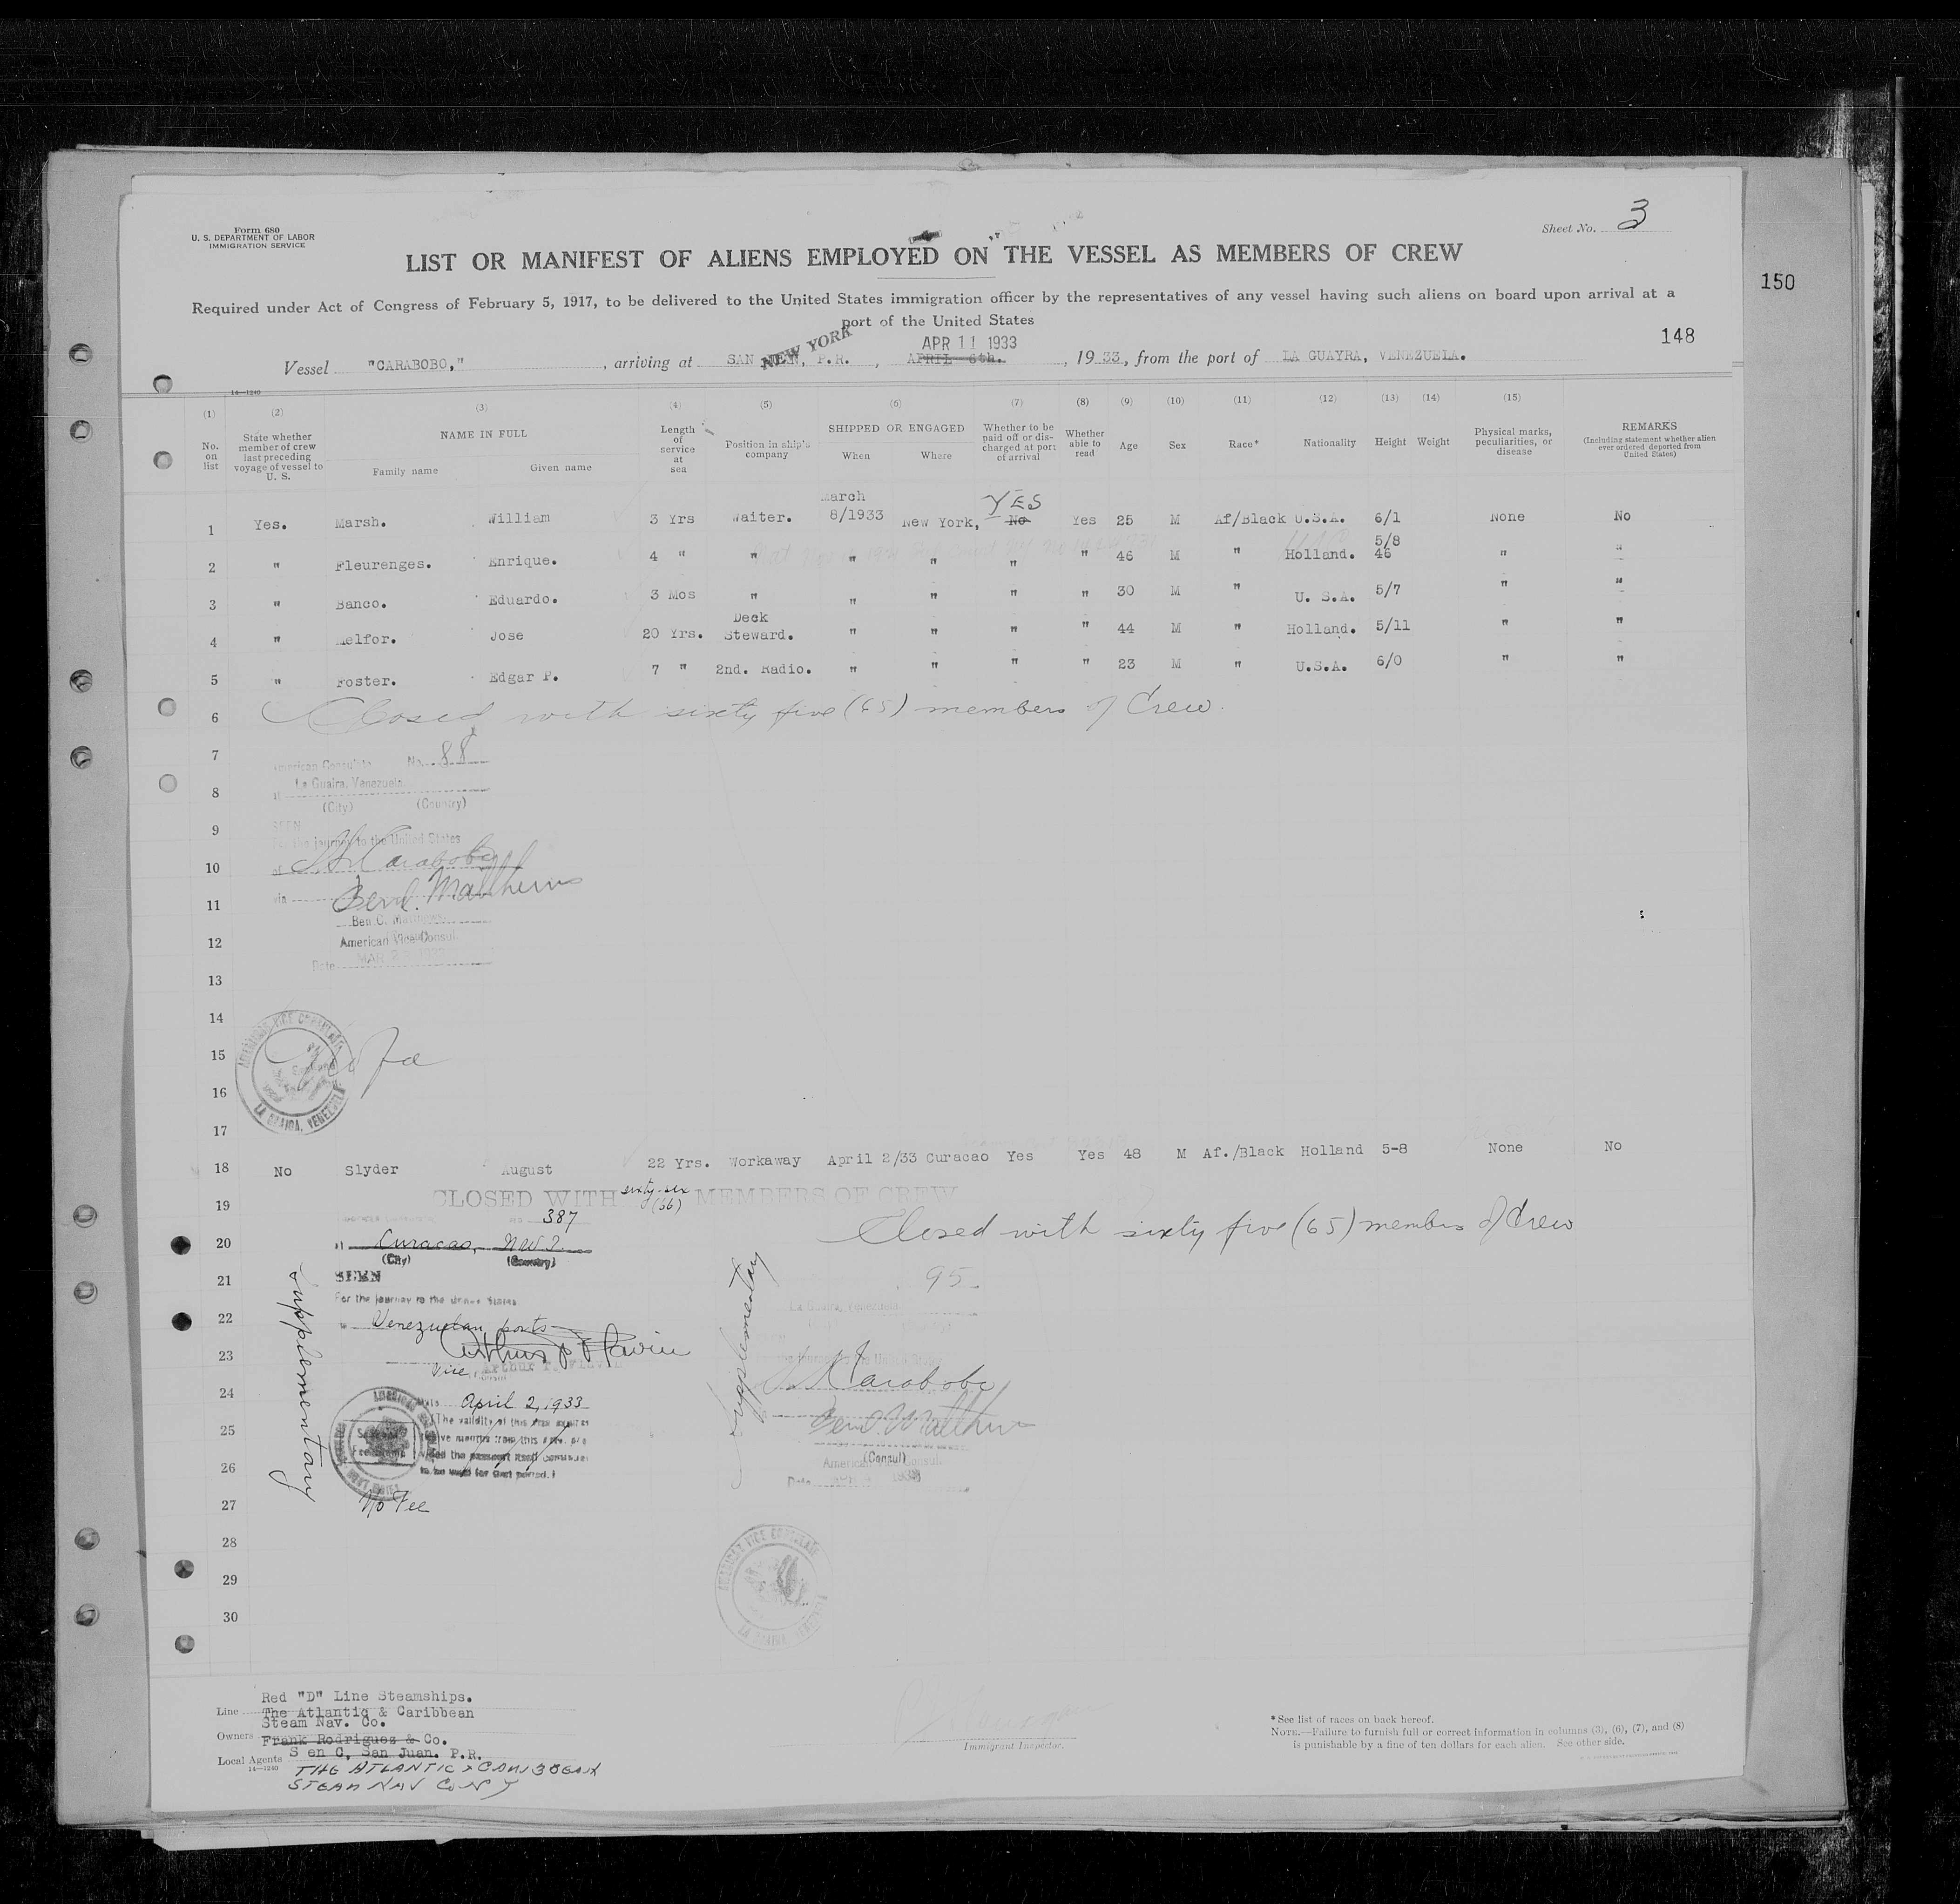 Form 680
U. S. DEPARTMENT OF LABOR
IMMIGRATION SERVICE
Sheet No. 3
LIST OR MANIFEST OF ALIENS EMPLOYED ON THE VESSEL AS MEMBERS OF CREW
150
Required under Act of Congress of February 5, 1917, to be delivered to the United States immigration officer by the representatives of any vessel having such aliens on board upon arrival at a
port of the United States
148
NEW YORK APR 11 1933
Vessel "CARABOBO," , arriving at SAN JUAN, P.R. , APRIL 6th. , 1933, from the port of LA GUAYRA, VENEZUELA.
14—1240
(1) (2) (3) (4) (5) (6) (7) (8) (9) (10) (11) (12) (13) (14) (15)
No. on list
State whether member of crew last preceding voyage of vessel to U. S.
NAME IN FULL
Family name Given name
Length of service at sea
Position in ship's company
SHIPPED OR ENGAGED
When Where
Whether to be paid off or discharged at port of arrival
Whether able to read
Age Sex Race* Nationality Height Weight
Physical marks, peculiarities, or disease
REMARKS
(Including statement whether alien ever ordered deported from United States)
March YES
1 Yes. Marsh. William 3 Yrs Waiter. 8/1933 New York, No Yes 25 M Af/Black U.S.A. 6/1 None No
5/8
2 " Fleurenges. Enrique. 4 " " " " " " 46 M " Holland. 46 " "
3 " Banco. Eduardo. 3 Mos " " " " " 30 M " U. S.A. 5/7 " "
Deck
4 " Melfor. Jose 20 Yrs. Steward. " " " " 44 M " Holland. 5/11 " "
5 " Foster. Edgar P. 7 " 2nd. Radio. " " " " 23 M " U.S.A. 6/0 " "
6 Closed with sixty five (65) members of Crew.
7 American Consulate No. 88
8 at La Guaira, Venezuela
(City) (Country)
9 SEEN
For the journey to the United States
10 of SS Carabobo
11 via Ben C. Matthews
Ben C. Matthews
12 American Vice Consul.
Date MAR
13
14
15 No Fee
16
AMERICAN VICE CONSULATE
LA GUAIRA, VENEZUELA
17
18 No Slyder August 22 Yrs. Workaway April 2/33 Curacao Yes Yes 48 M Af./Black Holland 5-8 None No
19 CLOSED WITH sixty-six (66) MEMBERS OF CREW
No 387
Closed with sixty five (65) members of Crew
20 at Curacao, N.W.I.
(City) (Country)
21 SEEN
For the journey to the United States
22 to Venezuelan ports
23
Vice Consul
24 Date April 2, 1933
(The validity of this visa expires
25 twelve months from this date, pro-
vided the passport itself continues
26 to be valid for that period.)
Supplementary
27 No Fee
Supplementary
95
La Guaira, Venezuela
Carabobo
Ben C. Matthews
(Consul)
American Vice Consul.
Date
28
29
30
AMERICAN VICE CONSULATE
LA GUAIRA, VENEZUELA
Red "D" Line Steamships.
Line The Atlantic & Caribbean
Steam Nav. Co.
Owners Frank Rodriguez & Co.
Local Agents S en C, San Juan. P.R.
14—1240
THE ATLANTIC & CARIBBEAN
STEAM NAV CO N Y
Immigrant Inspector.
*See list of races on back hereof.
NOTE.—Failure to furnish full or correct information in columns (3), (6), (7), and (8)
is punishable by a fine of ten dollars for each alien. See other side.